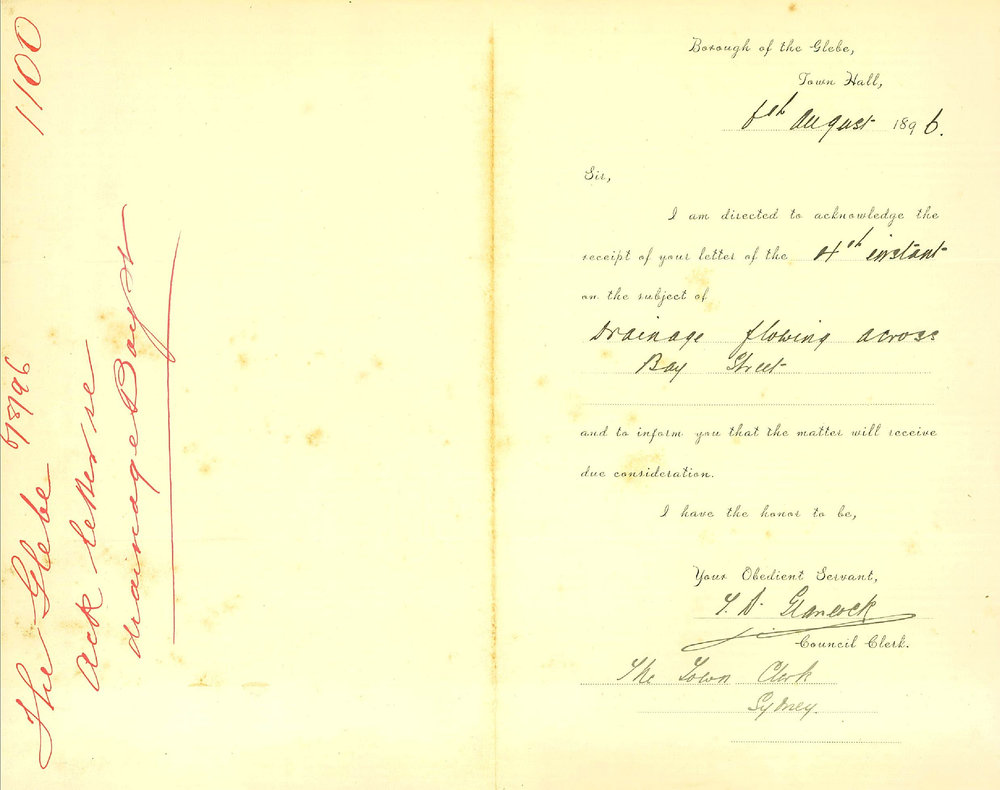 1100
The Glebe 6/8/96
Ack letter re
drainage Bay St
Borough of the Glebe,
Town Hall,
6th August 1896.
Sir,
I am directed to acknowledge the
receipt of your letter of the 4th instant
on the subject of
Drainage flowing across
Bay Street
and to inform you that the matter will receive
due consideration.
I have the honor to be,
Your Obedient Servant,
T. D. Glancock
Council Clerk.
The Town Clerk
Sydney.